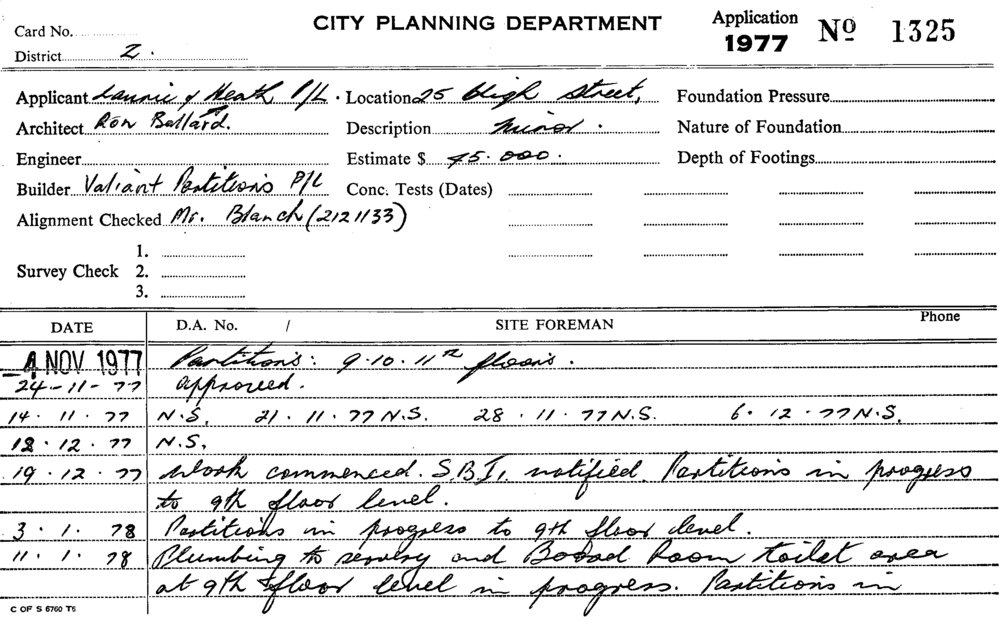 CITY PLANNING DEPARTMENT
Application
1977 No 1325
Card No.
District 2.
Applicant Laurie & Heath P/L. Location 25 Bligh Street, Foundation Pressure
Architect Ron Ballard. Description minor. Nature of Foundation
Engineer Estimate $ 45.000. Depth of Footings
Builder Valiant Partitions P/L Conc. Tests (Dates)
Alignment Checked Mr. Blanch (2121133)
1.
Survey Check 2.
3.
DATE D.A. No. / SITE FOREMAN Phone
4 NOV 1977 Partitions: 9.10.11th floors.
24-11-77 approved.
14.11.77 N.S. 21.11.77 N.S. 28.11.77 N.S. 6.12.77 N.S.
12.77 N.S.
19.12.77 Work commenced. S.B.I. notified. Partitions in progress
to 9th floor level.
3.1.78 Partitions in progress to 9th floor level.
11.1.78 Plumbing to servery and Board Room toilet area
at 9th floor level in progress. Partitions in
C OF S 6760 T6